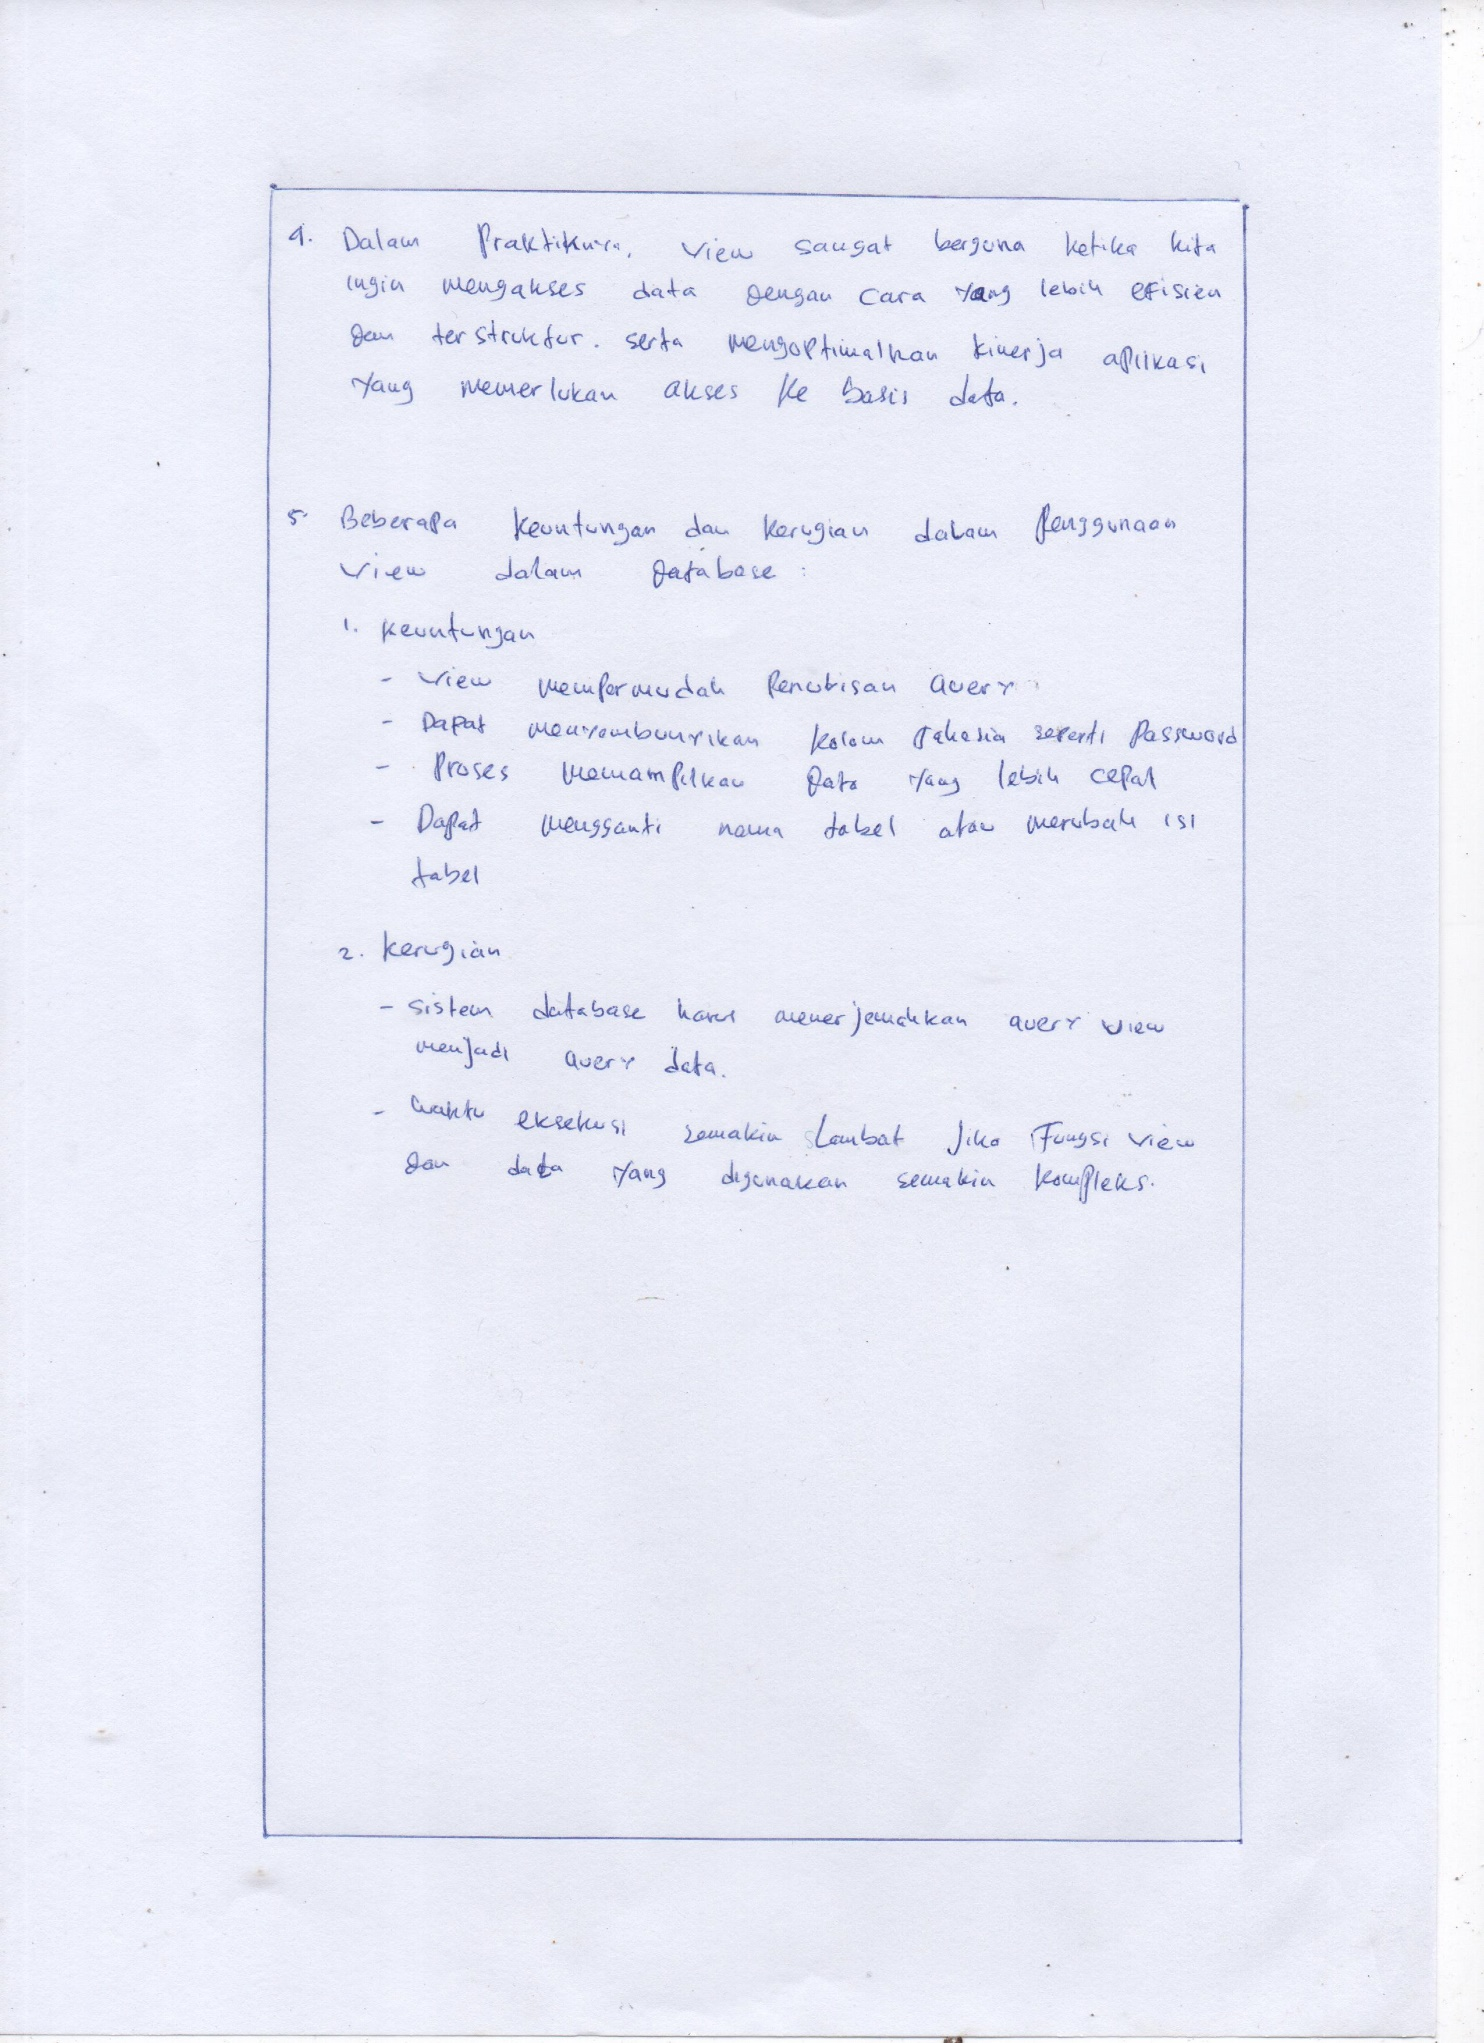 4. Dalam Praktiknya, view sangat berguna ketika kita
ingin mengakses data dengan cara yang lebih efisien
dan terstruktur. serta mengoptimalkan kinerja aplikasi
yang memerlukan akses ke basis data.
5. Beberapa keuntungan dan kerugian dalam Penggunaan
view dalam database :
1. keuntungan
- view mempermudah Penulisan query
- Dapat menyembunyikan kolom rahasia seperti Password
- Proses menampilkan data yang lebih cepat
- Dapat mengganti nama tabel atau merubah isi
tabel
2. kerugian
- sistem database harus menerjemahkan query view
menjadi query data.
- waktu eksekusi semakin lambat jika Fungsi view
dan data yang digunakan semakin kompleks.